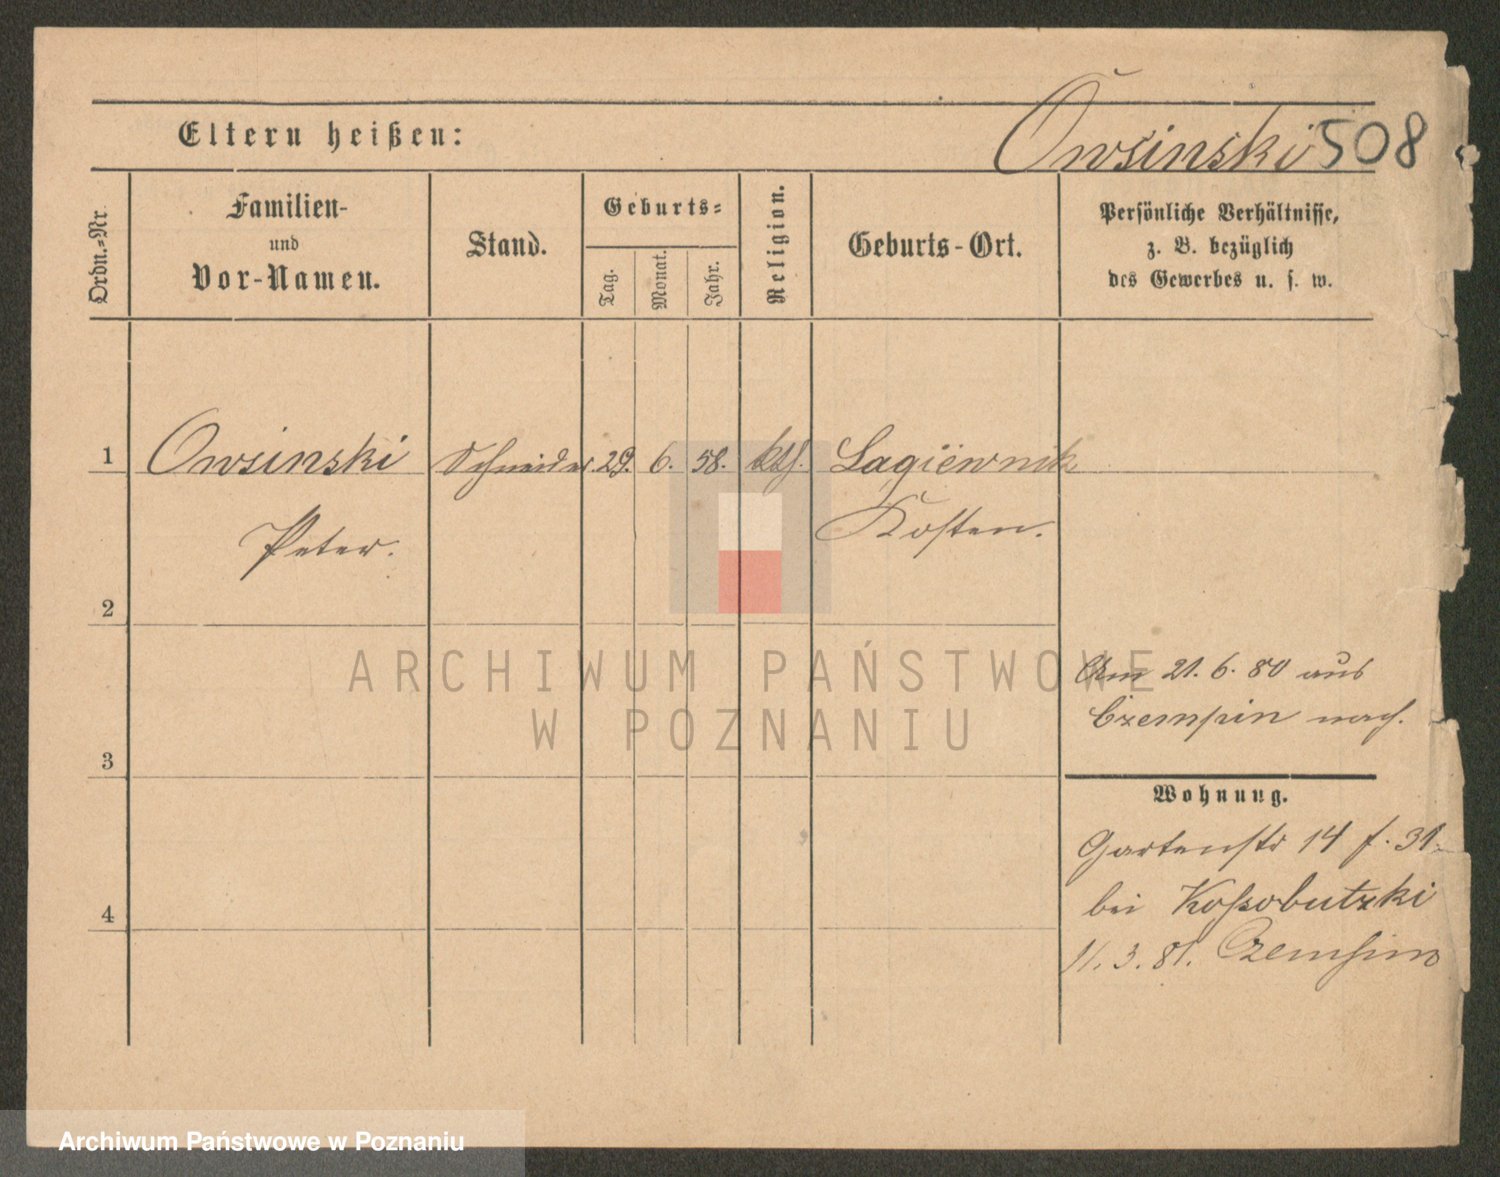 Eltern heißen:
Owsinski 508
Ordn.=Nr.
Familien-
und
Vor-Namen.
Stand.
Geburts=
Tag.
Monat.
Jahr.
Religion.
Geburts-Ort.
Persönliche Verhältnisse,
z. B. bezüglich
des Gewerbes u. s. w.
1 Owsinski Schneider. 29. 6. 58. kth. Lagiewnik
Peter. Kosten.
2
ARCHIWUM PAŃSTWOWE
W POZNANIU
Am 21. 6. 80 aus
Czempin nach.
3
Wohnung.
Gartenstr 14 f. 31.
bei Kossobutzki
4
11. 3. 81. Czempin
Archiwum Państwowe w Poznaniu